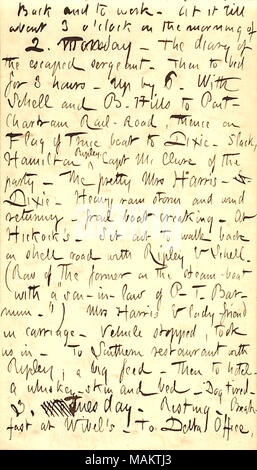 Back and to work – at it till
about 3 o'clock on the morning of
2. Monday – The diary of
the escaped sergeant. Then to bed
for 3 hours – Up by 6. With
Schell and B. Hills to Pont-
chartrain Rail-Road, thence on
Flag of Truce boat to Dixie. Slack,
Hamilton, Ripley, Capt Mc Clure of the
party – The pretty Mrs Harris –
Dixie. Heavy rain storm and wind
returning – frail boat creaking – At
Hickock's – Set out to walk back
on shell road with Ripley & Schell.
(Row of the former on the steam-boat
with a "son-in-law of P. T. Bar-
num.") Mrs Harris & lady friend
in carriage – Vehicle stopped, took
us in – To Southern restaurant with
Ripley, a big feed – Then to hotel
a whiskey-skin and bed – Dog tired –
3. Tuesday – Resting – Break-
fast at Wibel's – To Delta Office,
alamy
Image ID: MAKTJ3
www.alamy.com